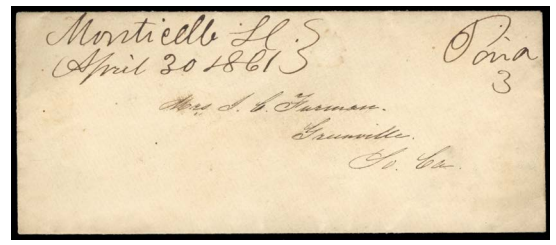 Monticello Fl.
April 30 1861
Paid
3
Mrs J. C. Furman.
Greenville.
So. Ca.